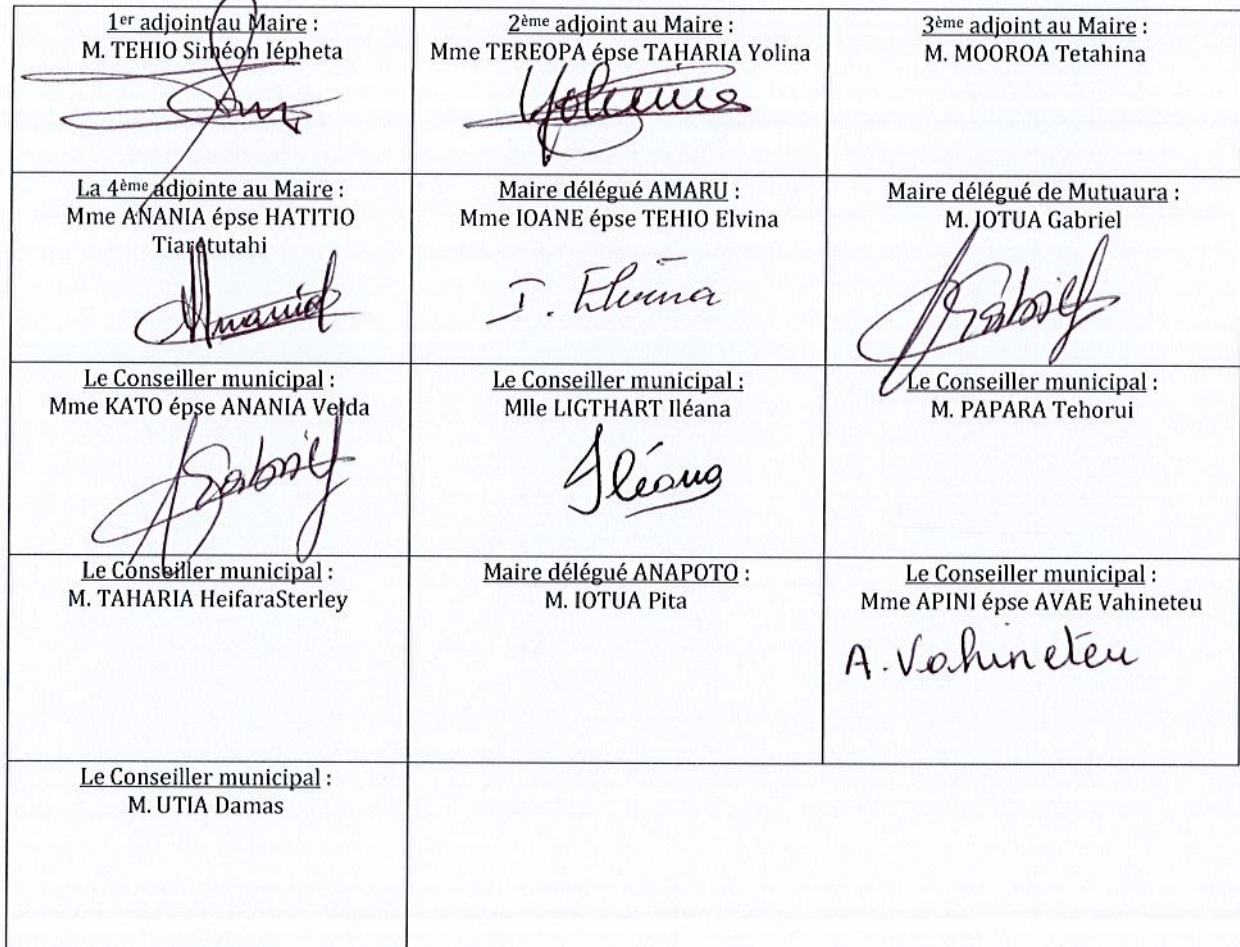 1er adjoint au Maire :
M. TEHIO Siméon Iépheta
2ème adjoint au Maire :
Mme TEREOPA épse TAHARIA Yolina
Yolina
3ème adjoint au Maire :
M. MOOROA Tetahina
La 4ème adjointe au Maire :
Mme ANANIA épse HATITIO
Tiaretutahi
Anania
Maire délégué AMARU :
Mme IOANE épse TEHIO Elvina
I. Elvina
Maire délégué de Mutuaura :
M. IOTUA Gabriel
Gabriel
Le Conseiller municipal :
Mme KATO épse ANANIA Veida
Gabriel
Le Conseiller municipal :
Mlle LIGTHART Iléana
Iléana
Le Conseiller municipal :
M. PAPARA Tehorui
Le Conseiller municipal :
M. TAHARIA HeifaraSterley
Maire délégué ANAPOTO :
M. IOTUA Pita
Le Conseiller municipal :
Mme APINI épse AVAE Vahineteu
A. Vahineteu
Le Conseiller municipal :
M. UTIA Damas